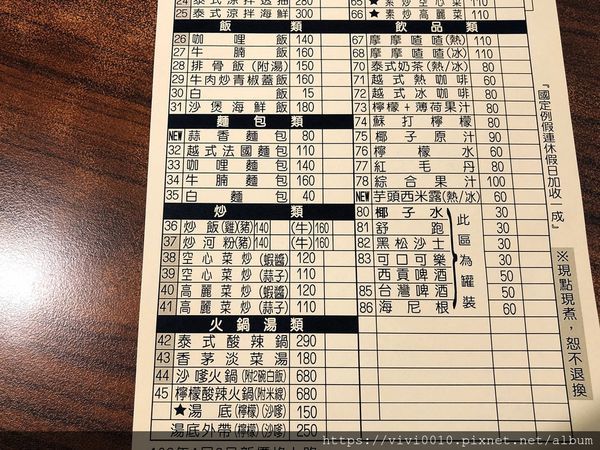 25 泰式涼拌海鮮 180
飯 類
26 咖哩飯 140
27 牛腩飯 160
28 排骨飯(附湯) 150
29 牛肉炒青椒蓋飯 160
30 白飯 15
31 沙煲海鮮飯 180
麵包類
NEW 蒜香麵包 80
32 越式法國麵包 110
33 咖哩麵包 140
34 牛腩麵包 160
35 白麵包 40
炒 類
36 炒飯(雞)(豬)140 (牛)160
37 炒河粉(豬)140 (牛)160
38 空心菜炒(蝦醬) 120
39 空心菜炒(蒜子) 110
40 高麗菜炒(蝦醬) 120
41 高麗菜炒(蒜子) 110
火鍋湯類
42 泰式酸辣鍋 290
43 香茅淡菜湯 180
44 沙嗲火鍋(附2碗白飯) 680
45 檸檬酸辣火鍋(附米線) 680
★湯底(檸檬)(沙嗲) 150
湯底外帶(檸檬)(沙嗲) 250
65 ★素炒空心菜 110
66 ★素炒高麗菜 110
飲品類
67 摩摩喳喳(熱) 110
68 摩摩喳喳(冰) 110
70 泰式奶茶(熱/冰) 80
71 越式熱咖啡 60
72 越式冰咖啡 80
73 檸檬+薄荷果汁 80
74 蘇打檸檬 80
75 椰子原汁 90
76 檸檬水 60
77 紅毛丹 80
78 綜合果汁 100
NEW 芋頭西米露(熱/冰) 60
80 椰子水 30
81 舒跑 30
82 黑松沙士 30
83 可口可樂 30
西貢啤酒 50
85 台灣啤酒 50
86 海尼根 60
此區為罐裝
『國定例假連休假日加收一成』
※現點現煮，恕不退換
https://vivi0010.pixnet.net/album